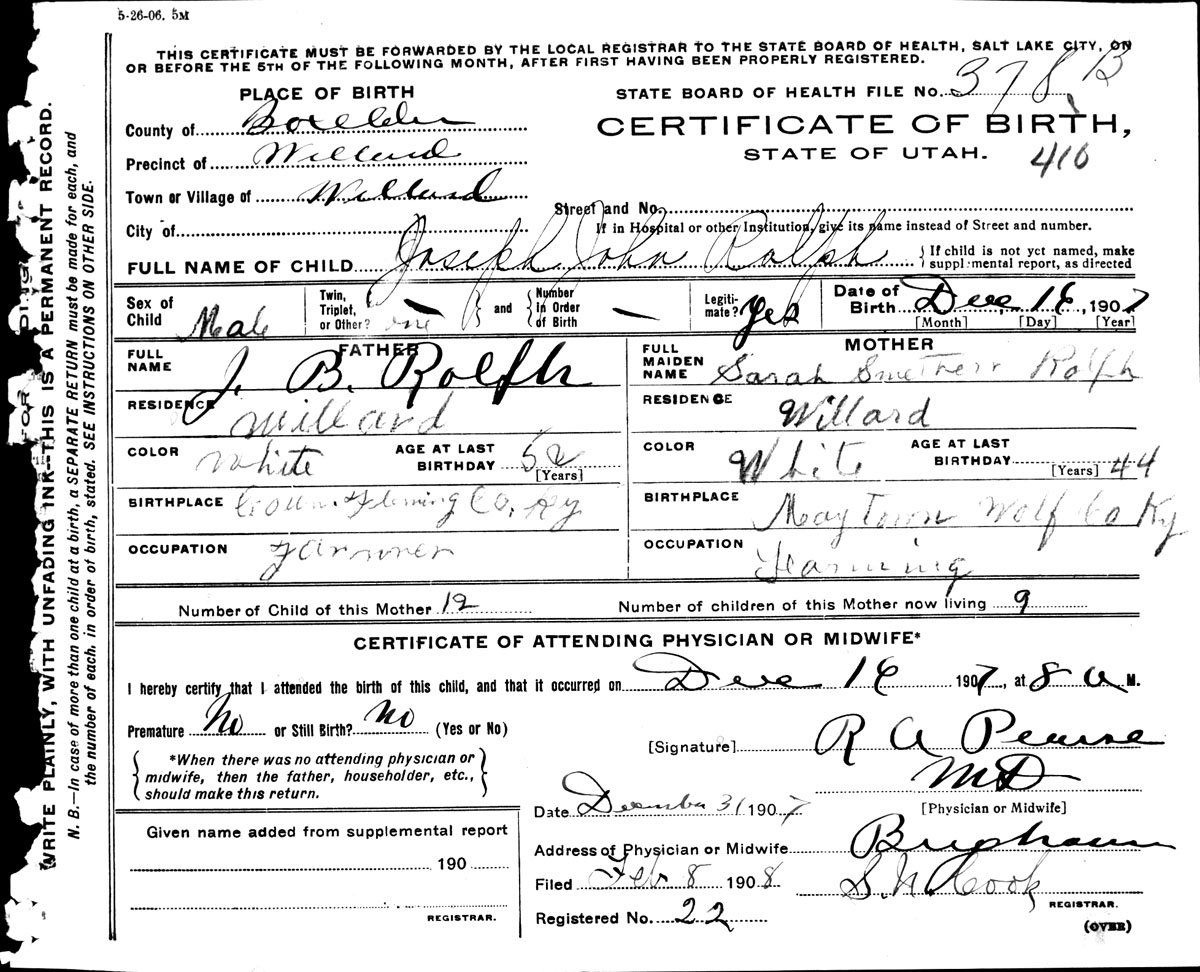 5-26-06. 5M
THIS CERTIFICATE MUST BE FORWARDED BY THE LOCAL REGISTRAR TO THE STATE BOARD OF HEALTH, SALT LAKE CITY, ON
OR BEFORE THE 5TH OF THE FOLLOWING MONTH, AFTER FIRST HAVING BEEN PROPERLY REGISTERED.
PLACE OF BIRTH
STATE BOARD OF HEALTH FILE No. 378 B
County of Boxelder
CERTIFICATE OF BIRTH,
Precinct of Willard
STATE OF UTAH. 416
Town or Village of Willard
Street and No.
City of
If in Hospital or other Institution, give its name instead of Street and number.
FULL NAME OF CHILD Joseph John Rolph { If child is not yet named, make supplemental report, as directed
Sex of Child Male
Twin, Triplet, or Other? one } and { Number In Order of Birth —
Legiti-mate? Yes
Date of Birth Dec, 16, 1907
[Month] [Day] [Year]
FATHER
FULL NAME J. B. Rolph
RESIDENCE Willard
COLOR White AGE AT LAST BIRTHDAY 52 [Years]
BIRTHPLACE Fleming Co. Ky
OCCUPATION Farmer
MOTHER
FULL MAIDEN NAME Sarah Rolph
RESIDENCE Willard
COLOR White AGE AT LAST BIRTHDAY [Years] 44
BIRTHPLACE May Town Wolf Co Ky
OCCUPATION Farming
Number of Child of this Mother 12 Number of children of this Mother now living 9
CERTIFICATE OF ATTENDING PHYSICIAN OR MIDWIFE*
I hereby certify that I attended the birth of this child, and that it occurred on Dec 16 1907, at 8 a M.
Premature No or Still Birth? no (Yes or No)
{ *When there was no attending physician or
midwife, then the father, householder, etc.,
should make this return. }
[Signature] R A Pearse
MD
[Physician or Midwife]
Date December 31 1907
Address of Physician or Midwife Brigham
Filed Feb 8 1908 S. N. Cook
REGISTRAR.
Registered No. 22
(OVER)
Given name added from supplemental report
190
REGISTRAR.
WRITE PLAINLY, WITH UNFADING INK—THIS IS A PERMANENT RECORD.
N. B.—In case of more than one child at a birth, a SEPARATE RETURN must be made for each, and
the number of each, in order of birth, stated. SEE INSTRUCTIONS ON OTHER SIDE.